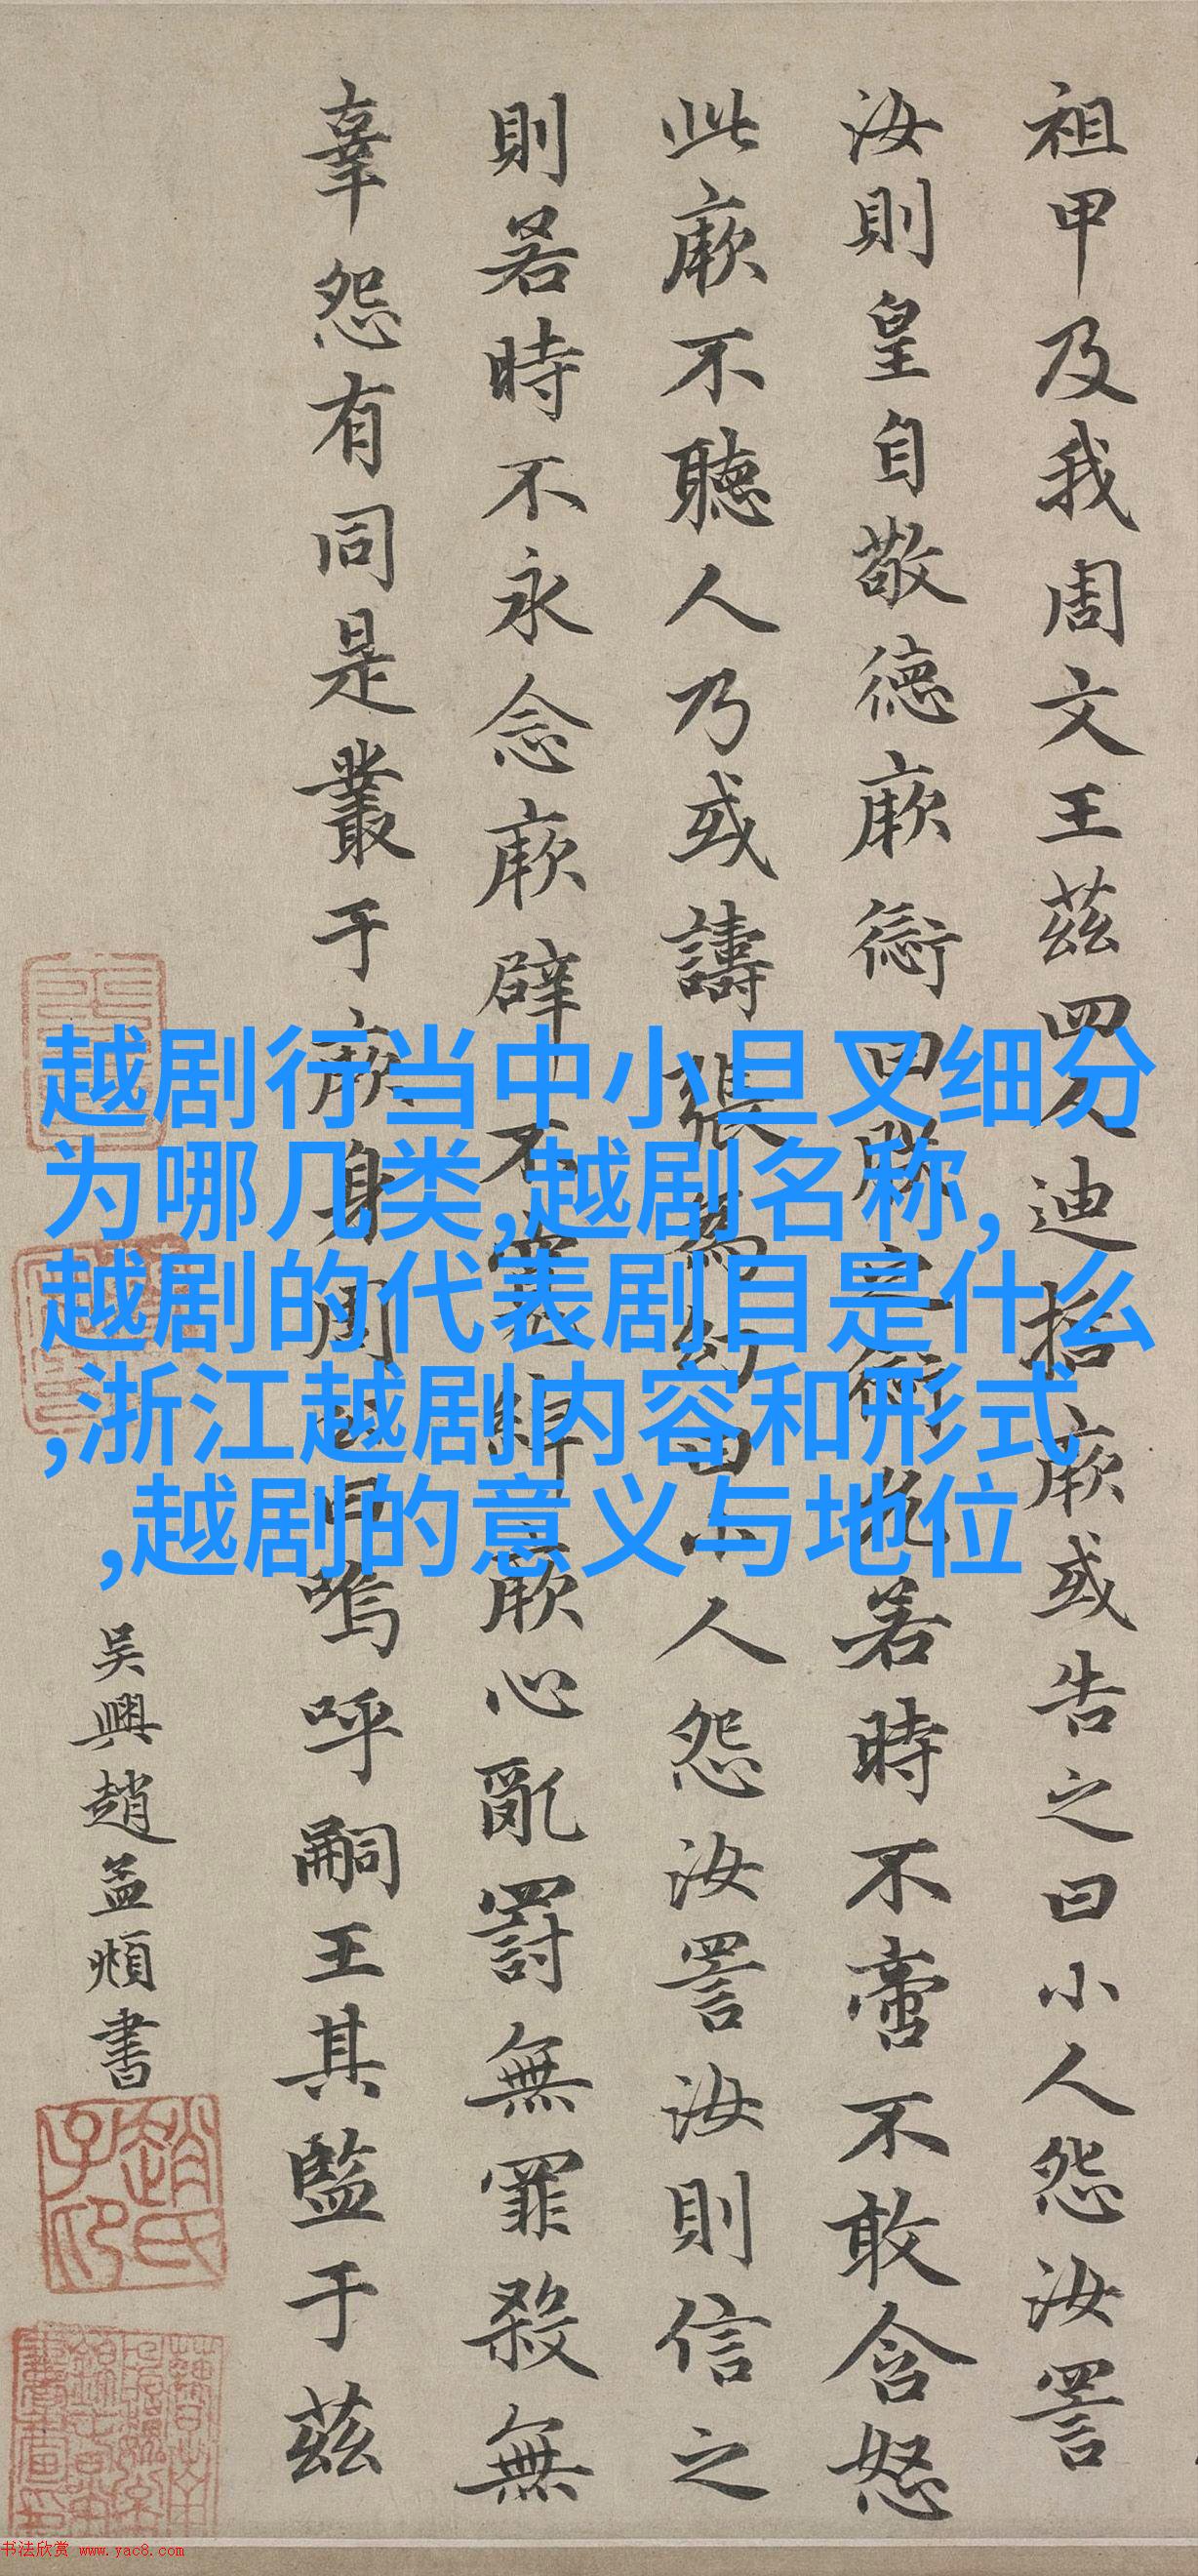 祖甲及我周文王茲四人迪哲厥或告之曰小人怨汝詈
汝則皇自敬德厥愆曰朕之愆允若時不啻不敢含怒
此厥不聽人乃或譸張為幻曰小人怨汝詈汝則信之
則若時不永念厥辟不寬綽厥心亂罰無罪殺無
辜怨有同是叢于厥身周公曰嗚呼嗣王其監于茲
吴興趙孟頫書
趙氏子昂
越剧行当中小旦又细分
为哪几类,越剧名称,
越剧的代表剧目是什么
,浙江越剧内容和形式
,越剧的意义与地位
书法欣赏 www.yac8.com